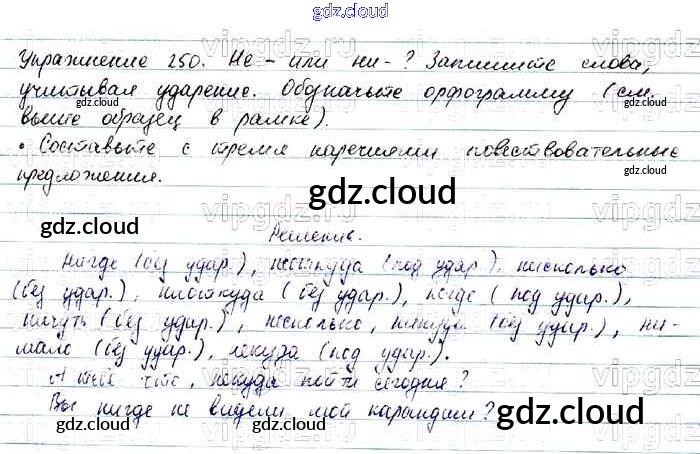 gdz.cloud
Упражнение 250. Не- или ни-? Запишите слова,
учитывая ударение. Обозначьте орфограмму (см.
gdz.cloud
gdz.cloud
выше образец в рамке).
• Составьте с тремя наречиями повествовательные
предложения.
gdz.cloud
gdz.cloud
gdz.cloud
Решение.
Нигде (без удар.), неоткуда (под удар.), нисколько
(без удар.), ниоткуда (без удар.), негде (под удар.),
ничуть (без удар.), несколько, никуда (без удар.), ни-
мало (без удар.), некуда (под удар.).
А тебе что, некуда пойти сегодня?
Вы нигде не видели мой карандаш?
gdz.cloud
gdz.cloud
gdz.cloud